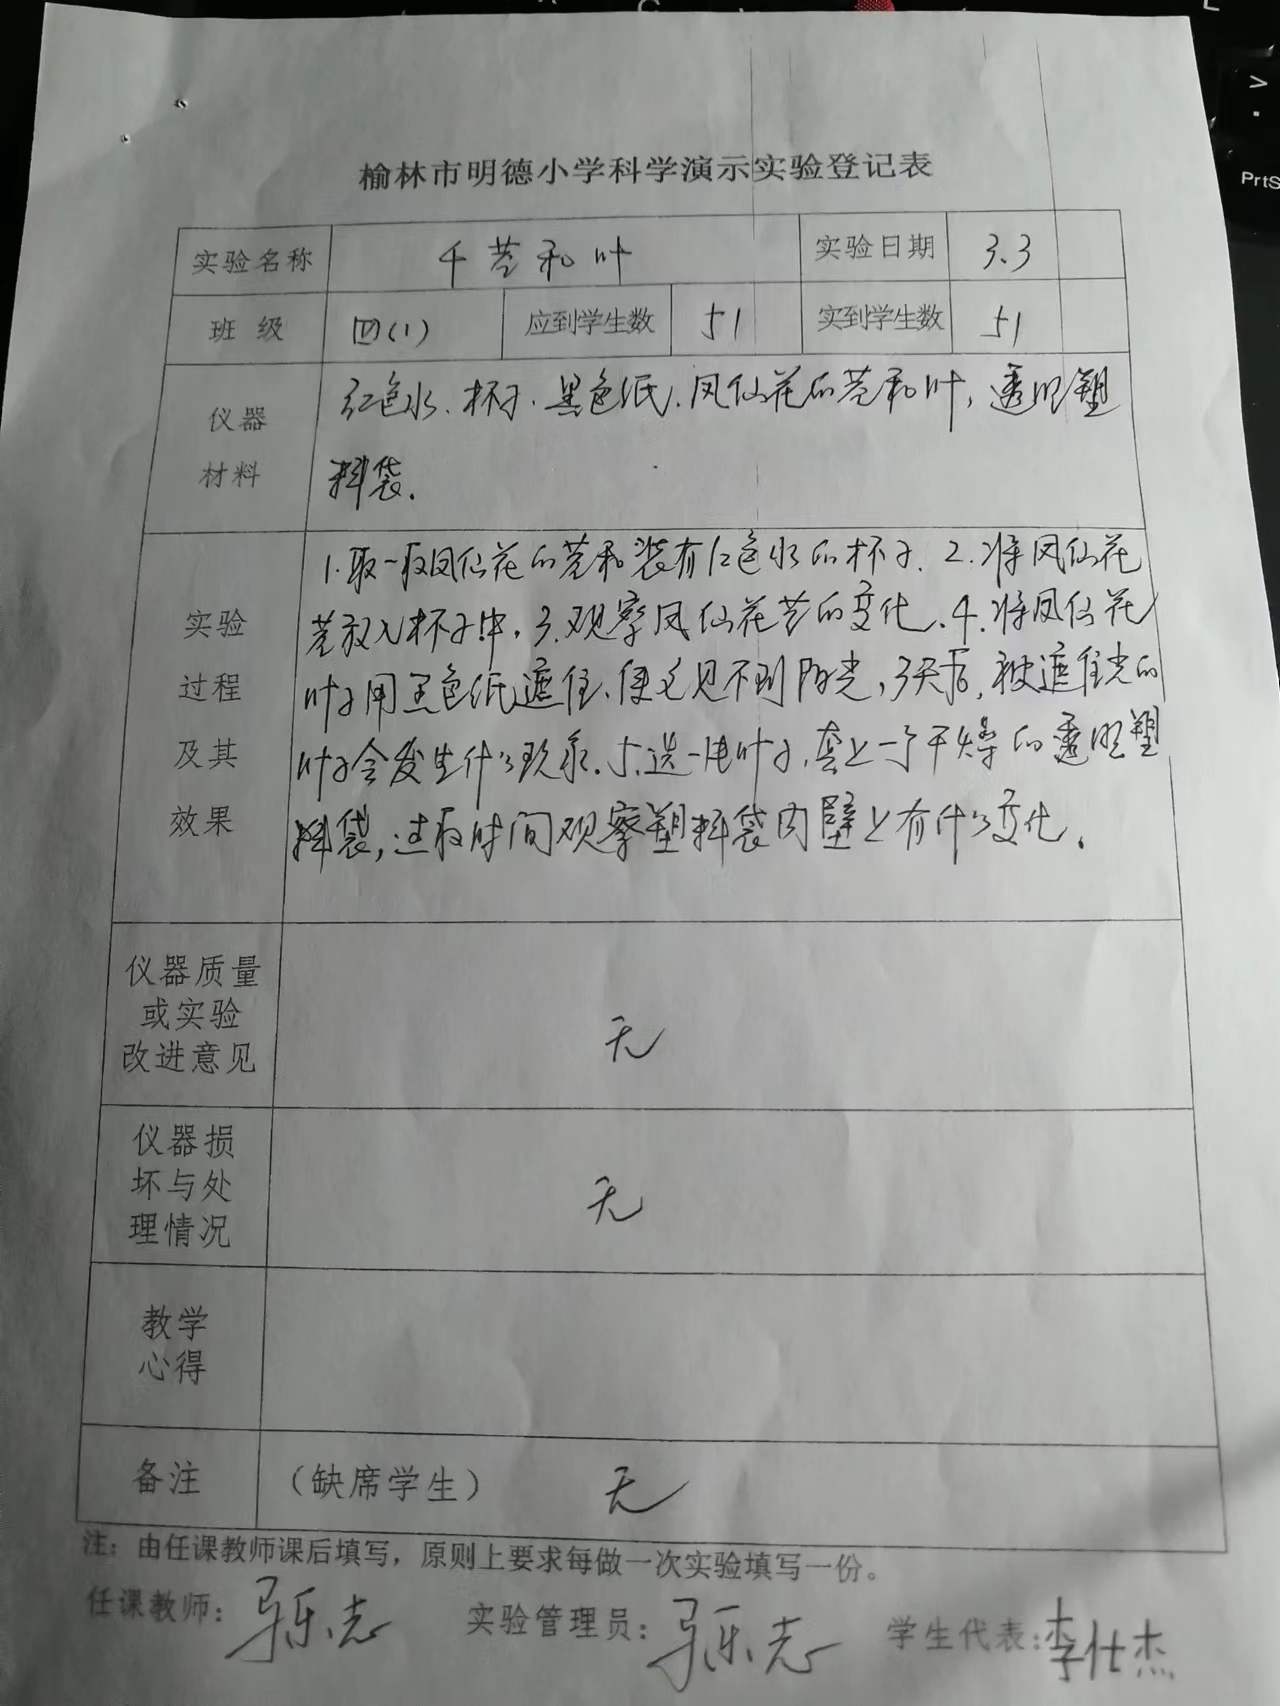 榆林市明德小学科学演示实验登记表
实验名称 茎和叶 实验日期 3.3
班 级 四(1) 应到学生数 51 实到学生数 51
仪器 红色水、杯子、黑色纸、凤仙花的茎和叶,透明塑
材料 料袋.
1.取一段凤仙花的茎和装有红色水的杯子. 2.将凤仙花
实验 茎放入杯子中, 3.观察凤仙花茎的变化. 4.将凤仙花
过程 叶子用黑色纸遮住、使它见不到阳光, 3天后,被遮住光的
及其 叶子会发生什么现象. 5.选一片叶子,套上一个干燥的透明塑
效果 料袋,过段时间观察塑料袋内壁上有什么变化.
仪器质量
或实验
改进意见 无
仪器损
坏与处
理情况 无
教学
心得
备注 (缺席学生) 无
注:由任课教师课后填写,原则上要求每做一次实验填写一份。
任课教师: 乐志 实验管理员: 乐志 学生代表: 李仕杰
PrtS